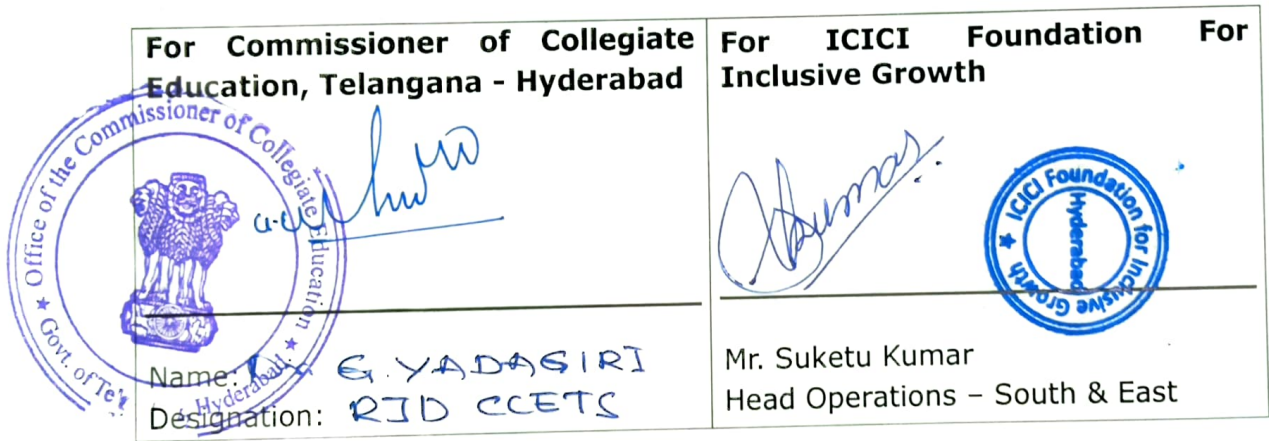 For Commissioner of Collegiate
Education, Telangana - Hyderabad
Office of the Commissioner of Collegiate Education
Govt. of Te
Hyderabad.
Name: G. YADAGIRI
Designation: RJD CCETS
For ICICI Foundation For
Inclusive Growth
Kumar
ICICI Foundation for Inclusive Growth
Hyderabad
Mr. Suketu Kumar
Head Operations – South & East